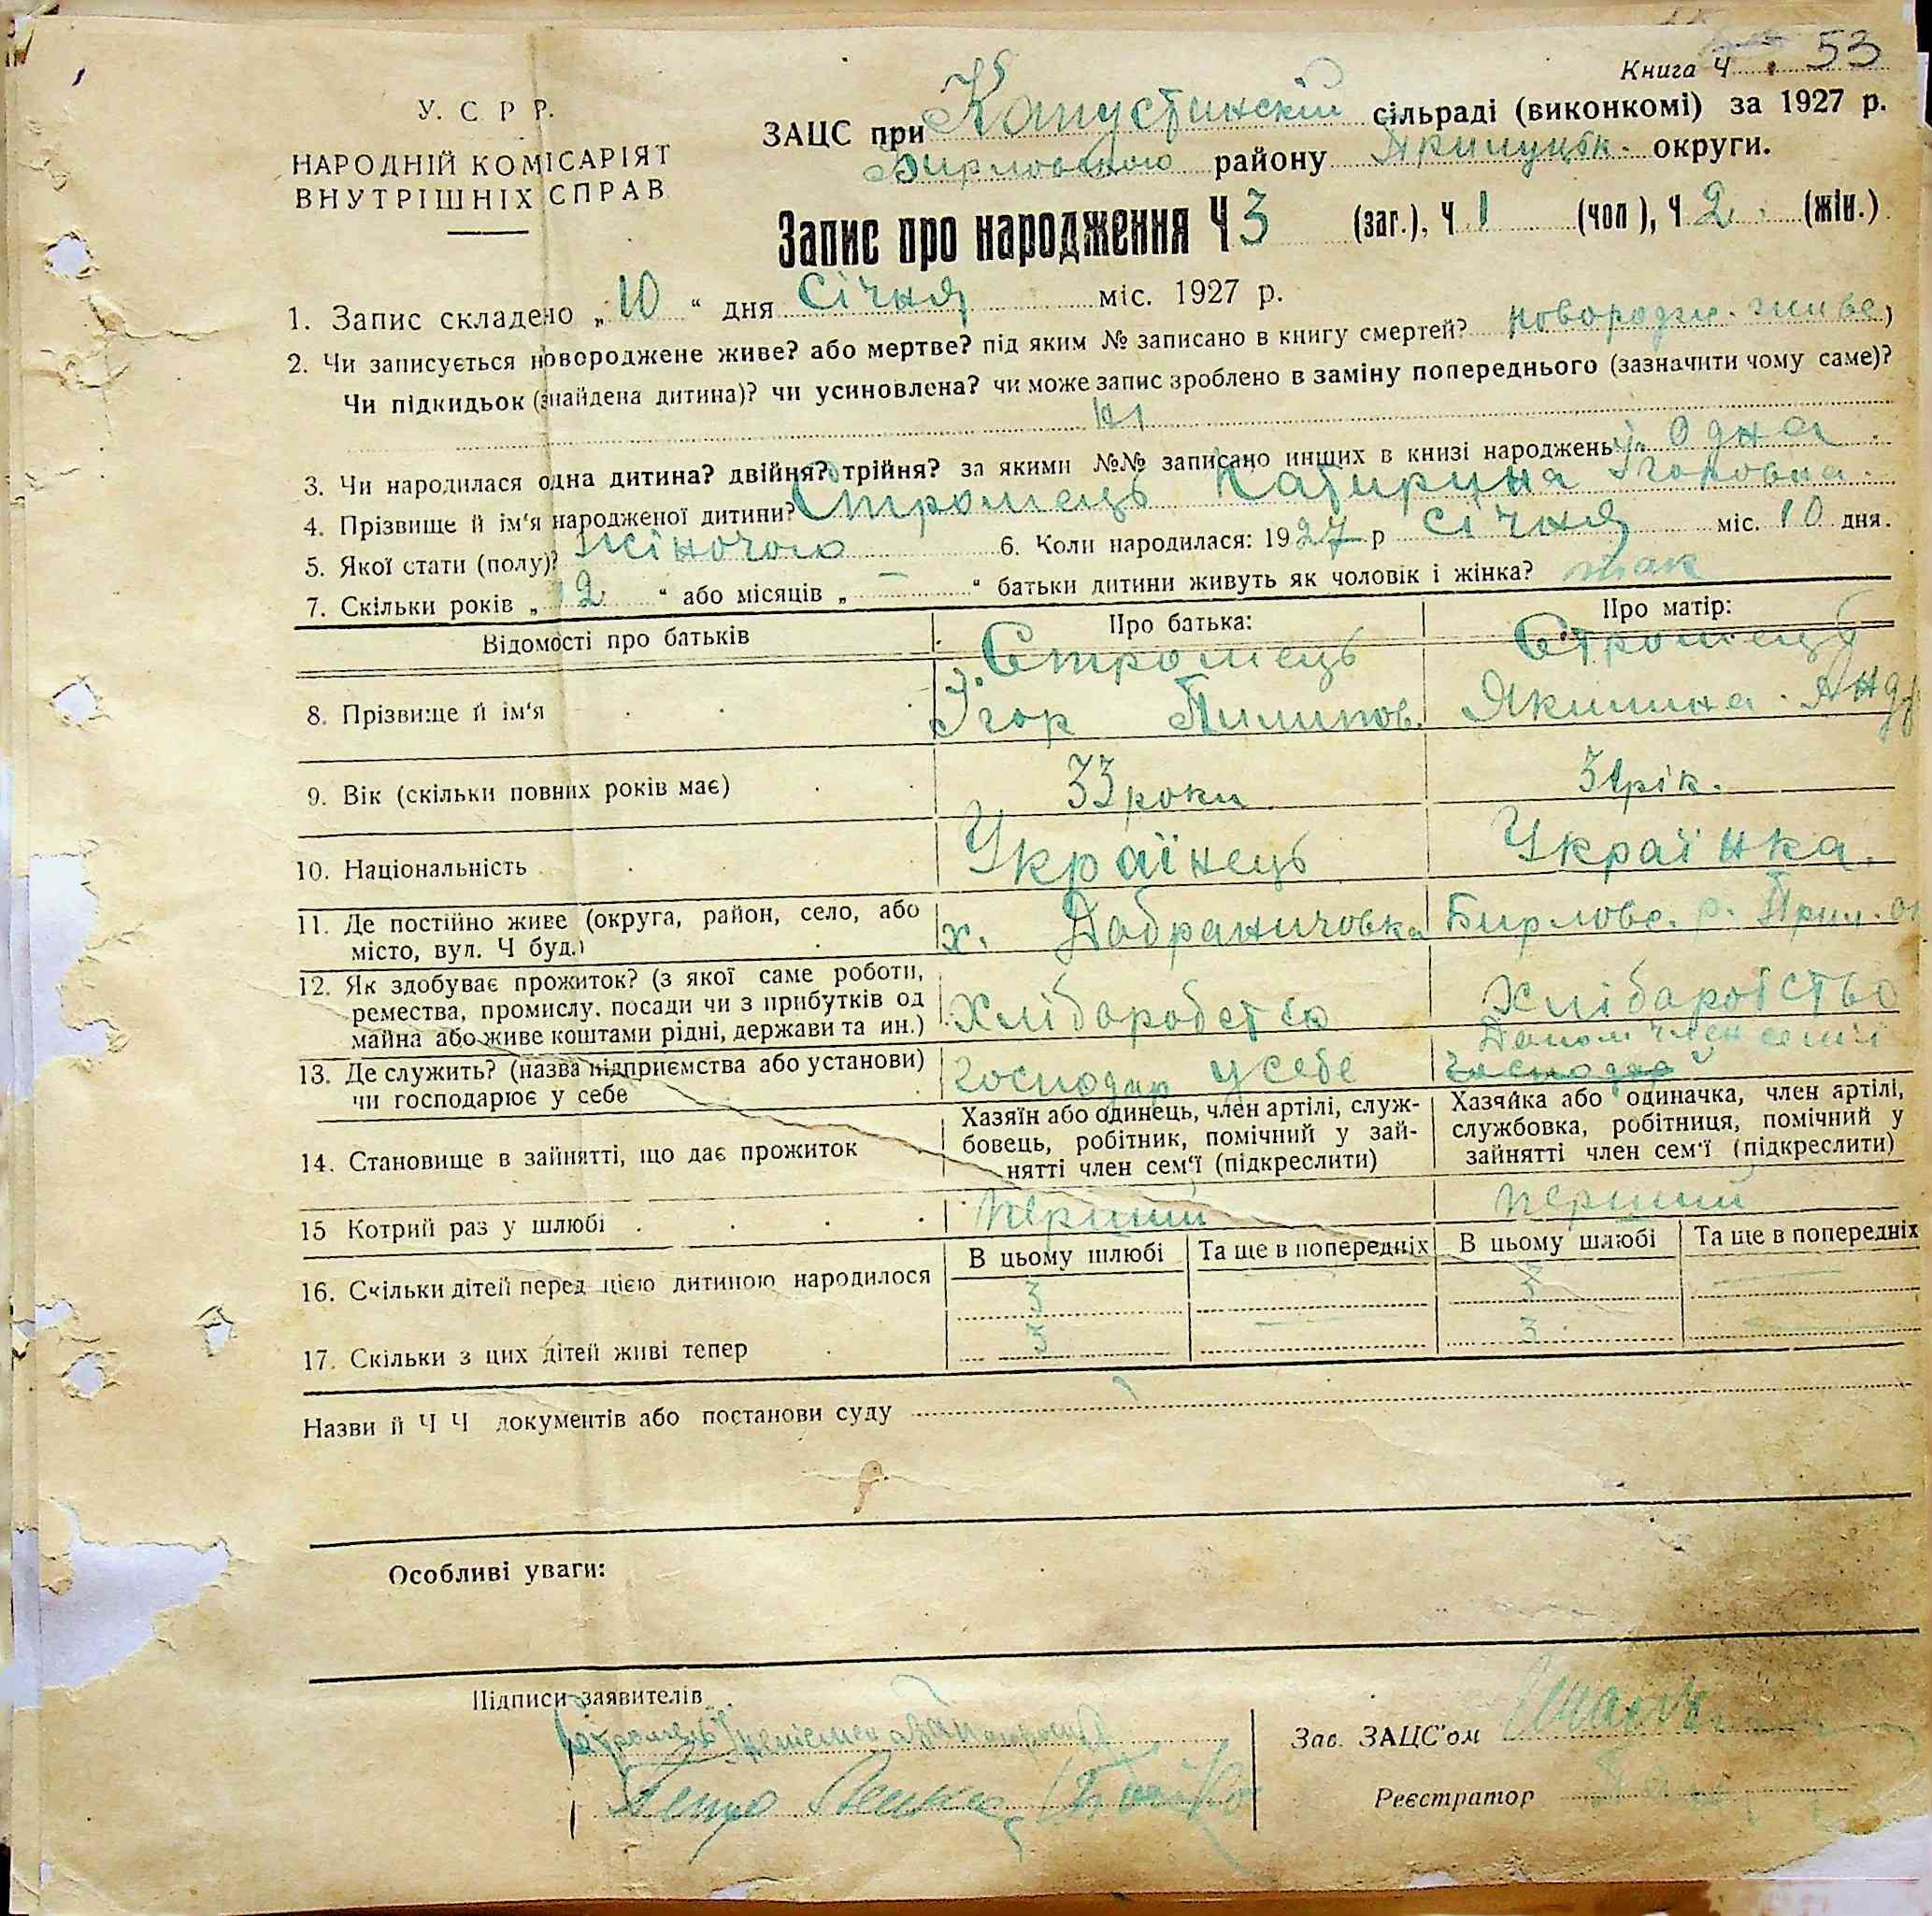 Книга Ч. 53
У. С. Р. Р.
НАРОДНІЙ КОМІСАРІЯТ
ВНУТРІШНІХ СПРАВ
ЗАЦС при Капустинскій сільраді (виконкомі) за 1927 р.
Бирловского району Прилуцьк. округи.
Запис про народження Ч 3 (заг.), Ч 1 (чол), Ч 2 (жін.)
1. Запис складено „ 10 “ дня Січня міс. 1927 р.
2. Чи записується новороджене живе? або мертве? під яким № записано в книгу смертей? новородж. живе,
Чи підкидьок (знайдена дитина)? чи усиновлена? чи може запис зроблено в заміну попереднього (зазначити чому саме)?
ні
3. Чи народилася одна дитина? двійня? трійня? за якими №№ записано инших в книзі народжень? Одна
4. Прізвище й ім‘я народженої дитини? Стромець Катирина Ігоровна
5. Якої стати (полу)? жіночого 6. Коли народилася: 1927 р Січня міс. 10 дня.
7. Скільки років „ 12 “ або місяців „ — “ батьки дитини живуть як чоловік і жінка? так
Відомості про батьків Про батька: Про матір:
Стромець Стромець
8. Прізвище й ім‘я Ігор Пилипов. Якилина Анд
9. Вік (скільки повних років має) 33 роки 31 рік.
10. Національність Українець Українка.
11. Де постійно живе (округа, район, село, або х. Добраничовка Бирловс. р. Прил. ок
місто, вул. Ч буд.)
12. Як здобуває прожиток? (з якої саме роботи,
ремества, промислу, посади чи з прибутків од Хліборобство Хлібаробство
майна або живе коштами рідні, держави та ин.)
Допом член семії
13. Де служить? (назва підприємства або установи) господар у себе господар
чи господарює у себе
14. Становище в зайнятті, що дає прожиток
Хазяїн або одинець, член артілі, служ-
бовець, робітник, помічний у зай-
нятті член сем‘ї (підкреслити)
Хазяйка або одиначка, член артілі,
службовка, робітниця, помічний у
зайнятті член сем‘ї (підкреслити)
15 Котрий раз у шлюбі перший перший
В цьому шлюбі Та ще в попередніх В цьому шлюбі Та ще в попередніх
16. Скільки дітей перед цією дитиною народилося 3 — 3 —
17. Скільки з цих дітей живі тепер 3 — 3 —
Назви й Ч Ч документів або постанови суду
Особливі уваги:
Підписи заявителів
Стромець
Петро
Зав. ЗАЦС‘ом
Реєстратор